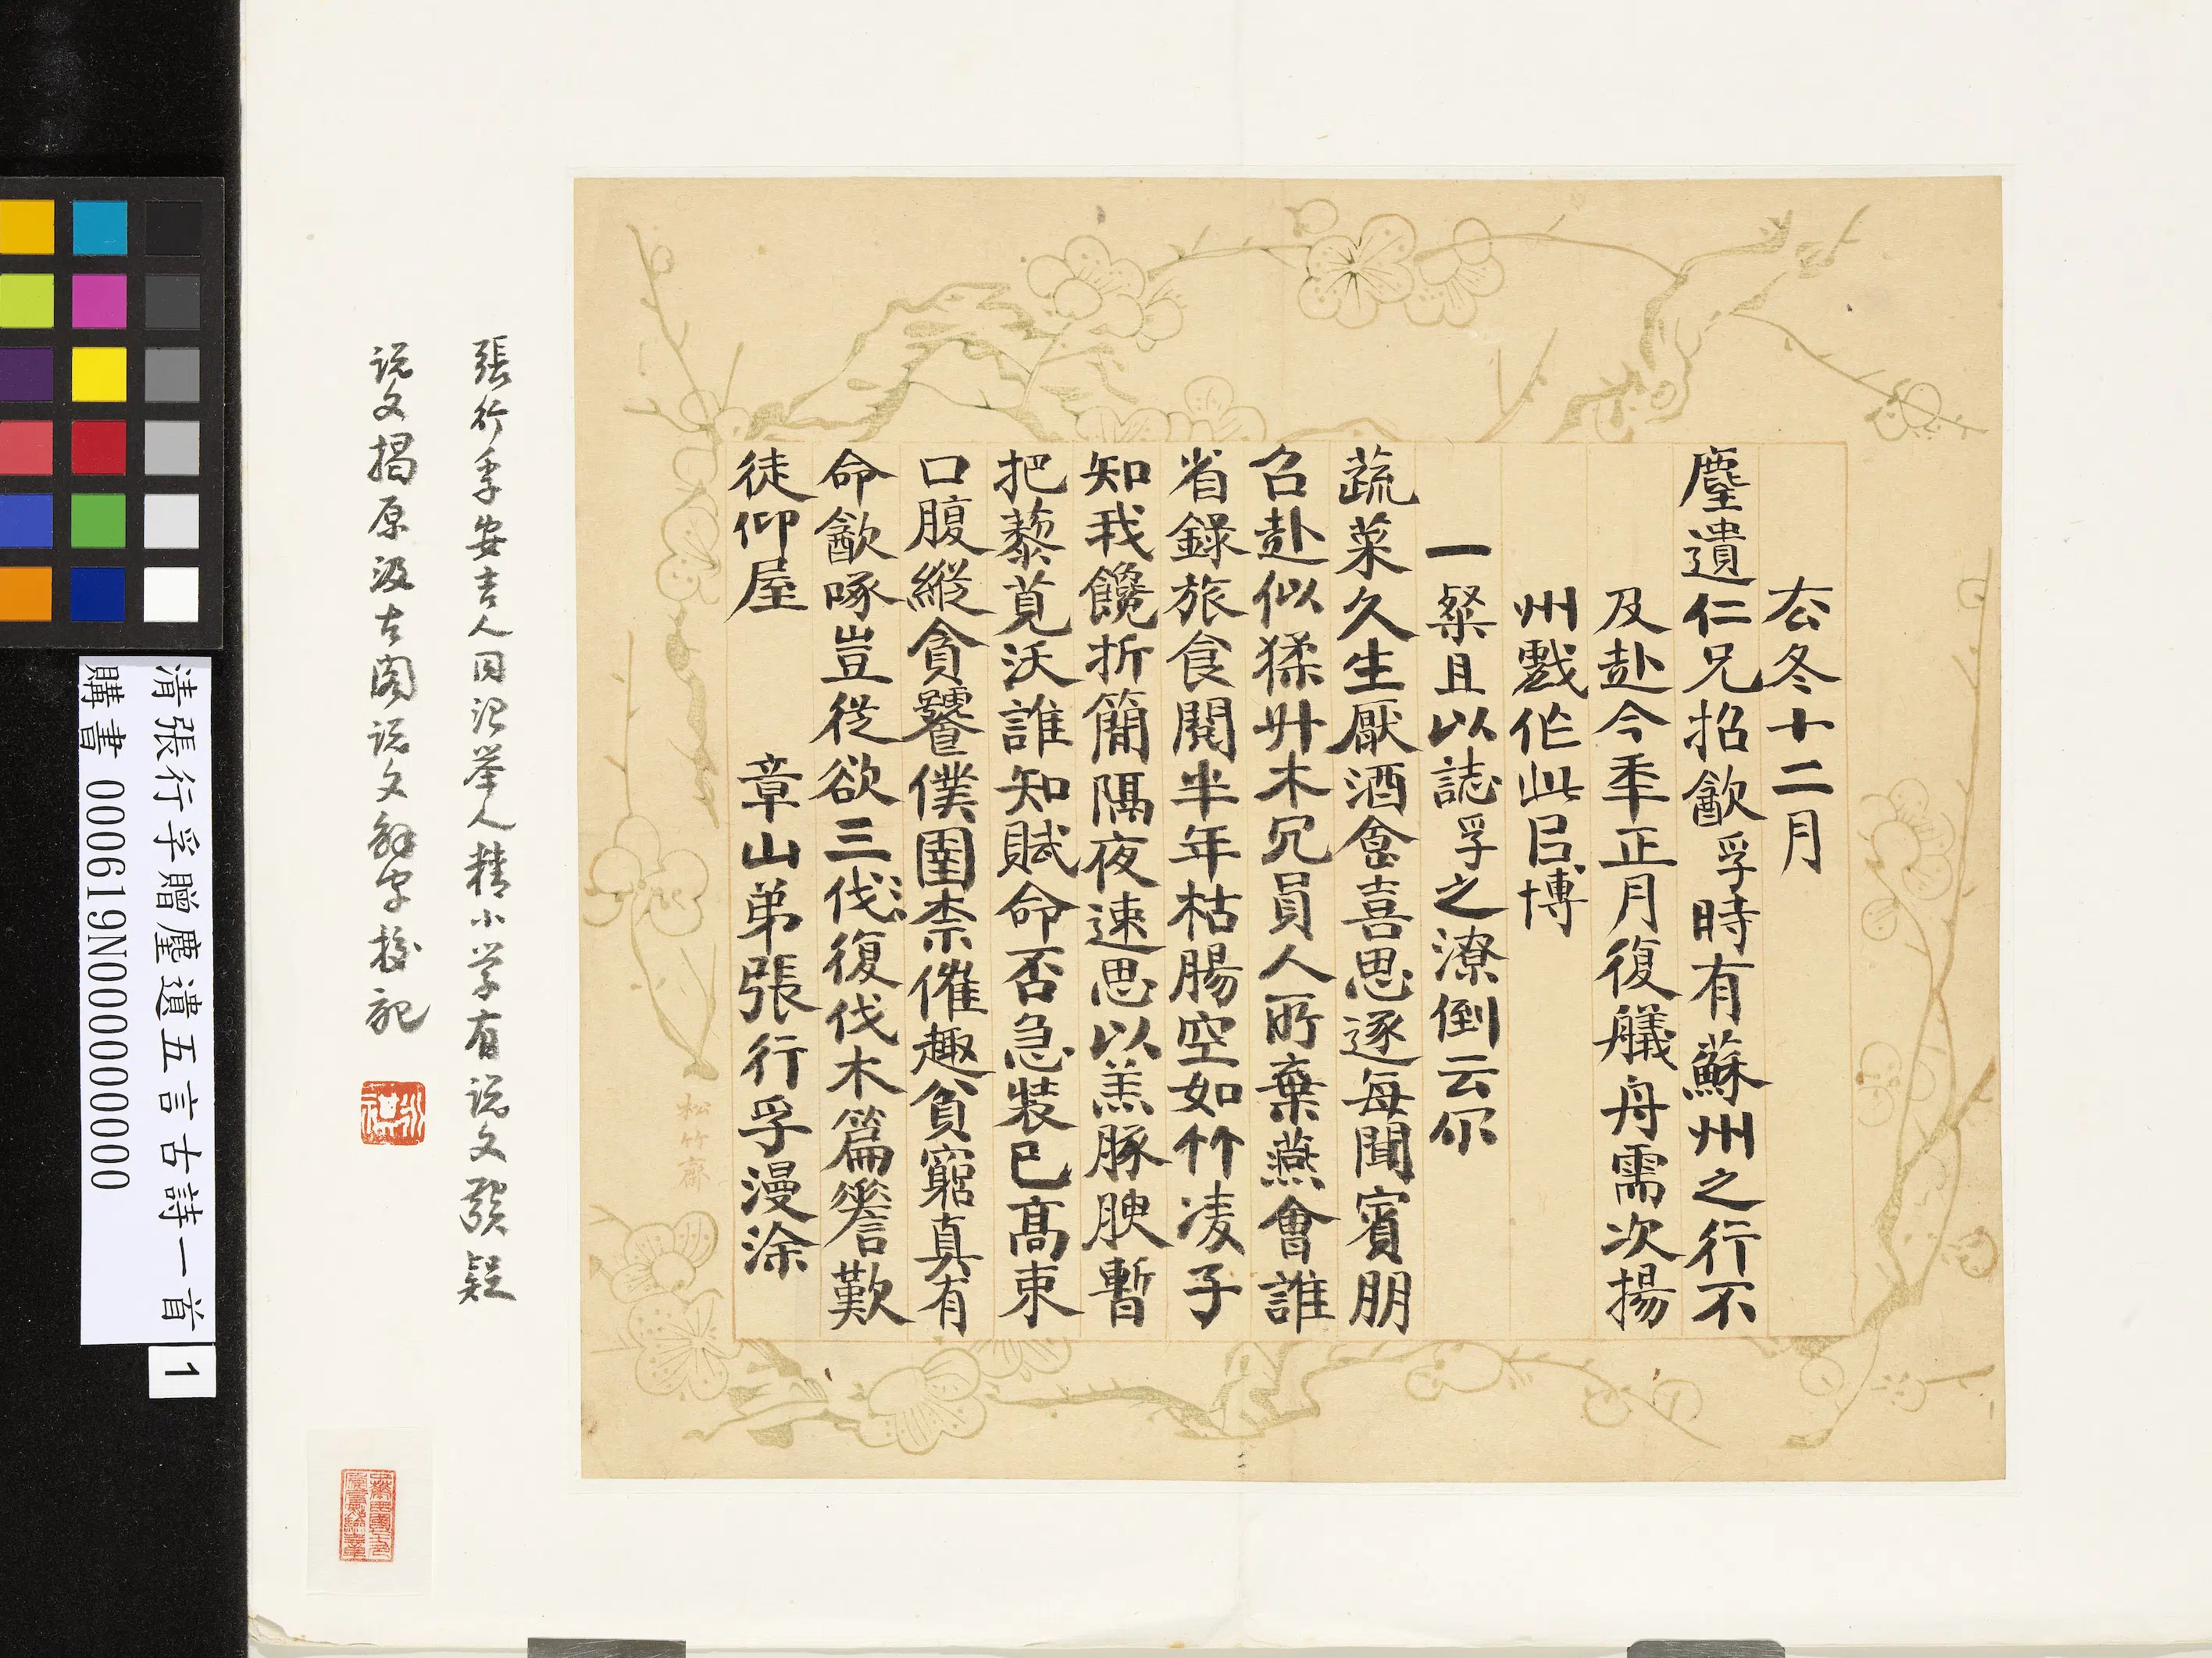 厺冬十二月
塵遺仁兄招歙孚時有蘇州之行不
及赴今秊正月復艤舟需次揚
州戲作此㠯博
一粲且以誌孚之潦倒云尒
蔬菜久生厭酒食喜思逐每聞賓朋
召赴似猱升木冗員人所棄燕會誰
省錄旅食閱半年枯腸空如竹凌子
知我饞折簡隔夜速思以羔豚腴暫
把藜莧沃誰知賦命否急裝已高束
口腹縱貪饕僕圉柰催趣貧窮真有
命歙啄豈從欲三伐復伐木篇簷歎
徒仰屋
章山弟張行孚漫涂
松竹齋
張行孚安吉人同治舉人精小學有說文發疑
說文揭原汲古閣說文解字校記
清張行孚贈塵遺五言古詩一首
購書 000619N000000000
1